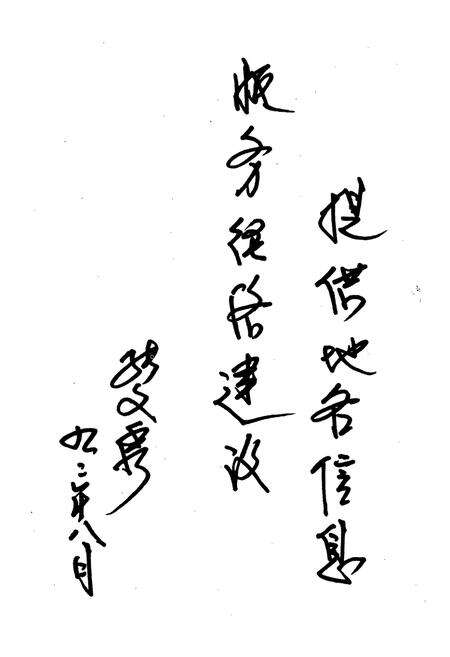 提供地名信息
服务经济建设
张文寿
九二年八月